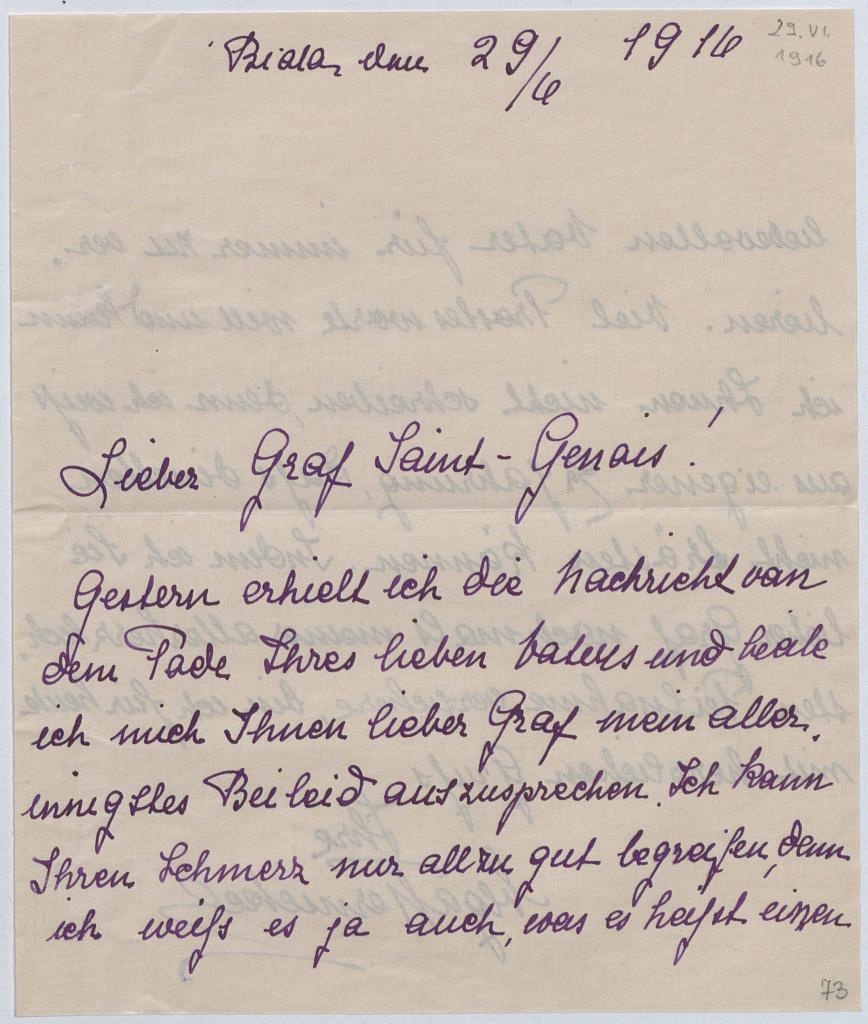 Biala, den 29/6 1916
29. VI.
1916
Lieber Graf Saint-Genois!
Gestern erhielt ich die Nachricht von
dem Tode Ihres lieben Vaters und beeile
ich mich Ihnen lieber Graf mein aller-
innigstes Beileid auszusprechen. Ich kann
Ihren Schmerz nur allzu gut begreifen, denn
ich weiß es ja auch, was es heißt einen
73